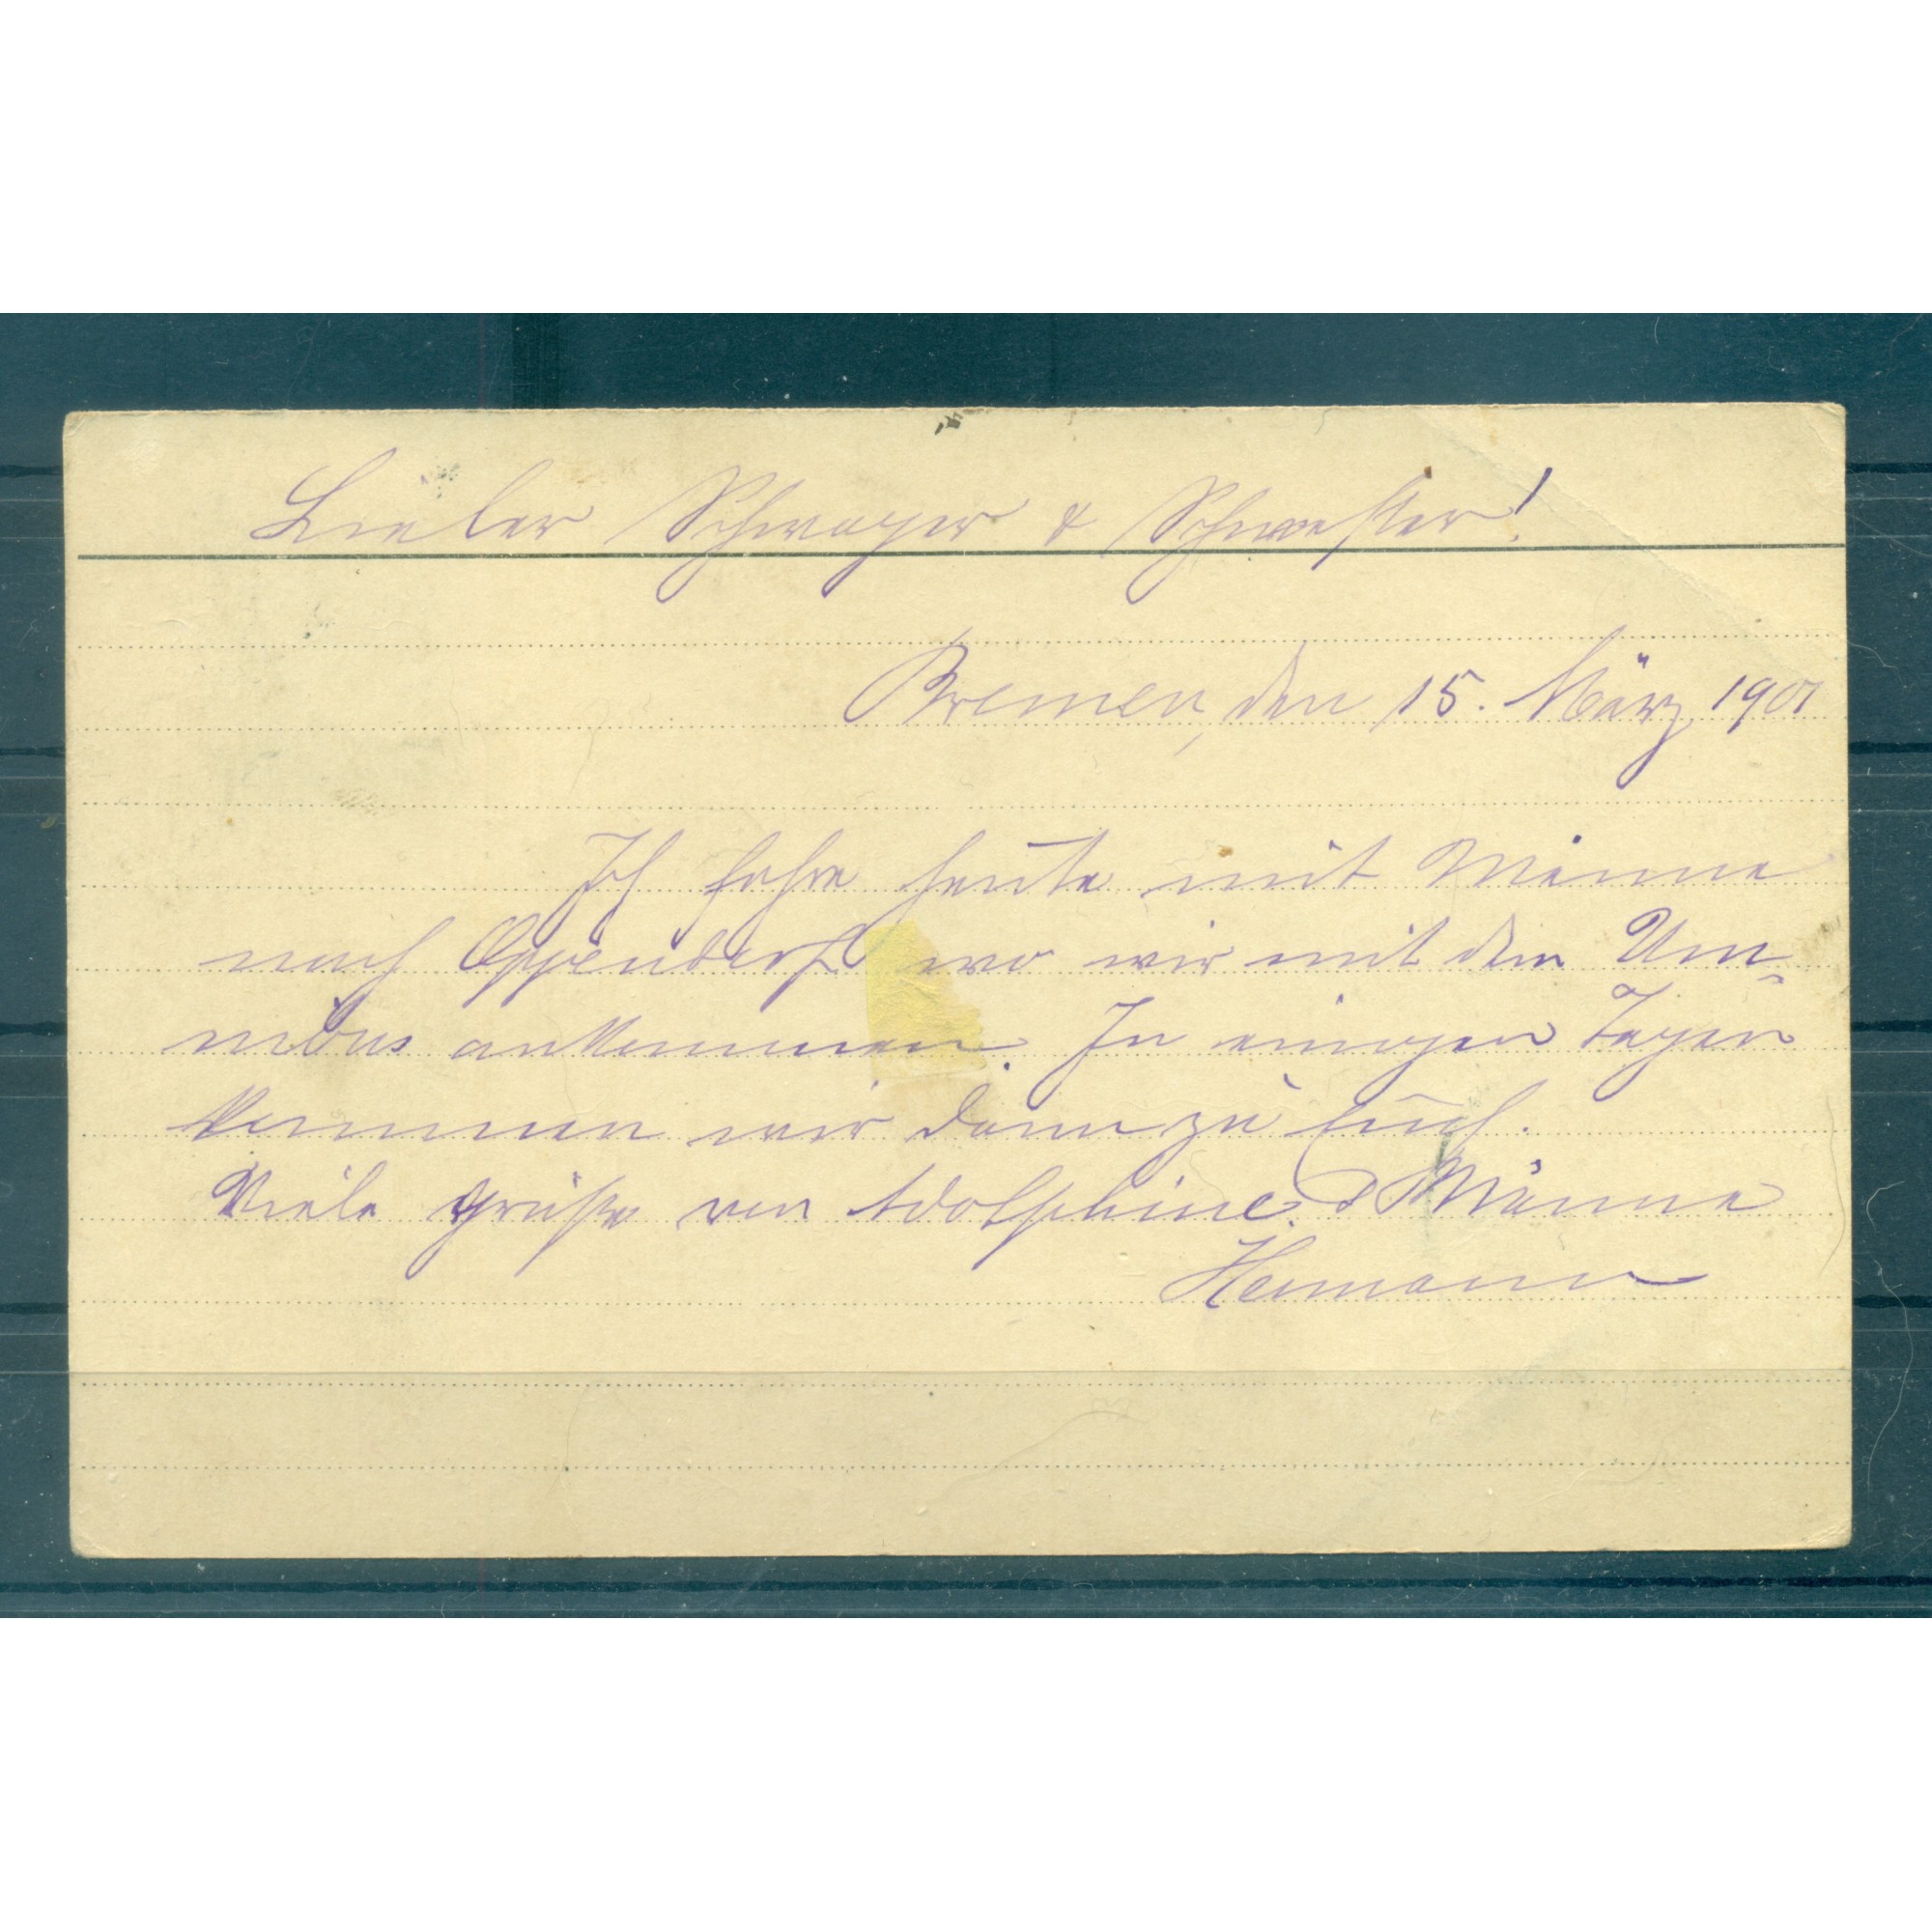 Lieber Schwager & Schwester!
Bremen, den 15. März 1901
Ich fahre heute mit Minna
nach Oppendorf wo wir mit dem Um-
nibus ankommen. In einigen Tagen
kommen wir dann zu Euch.
Viele Grüße von Adolphine. & Minna
Hermann